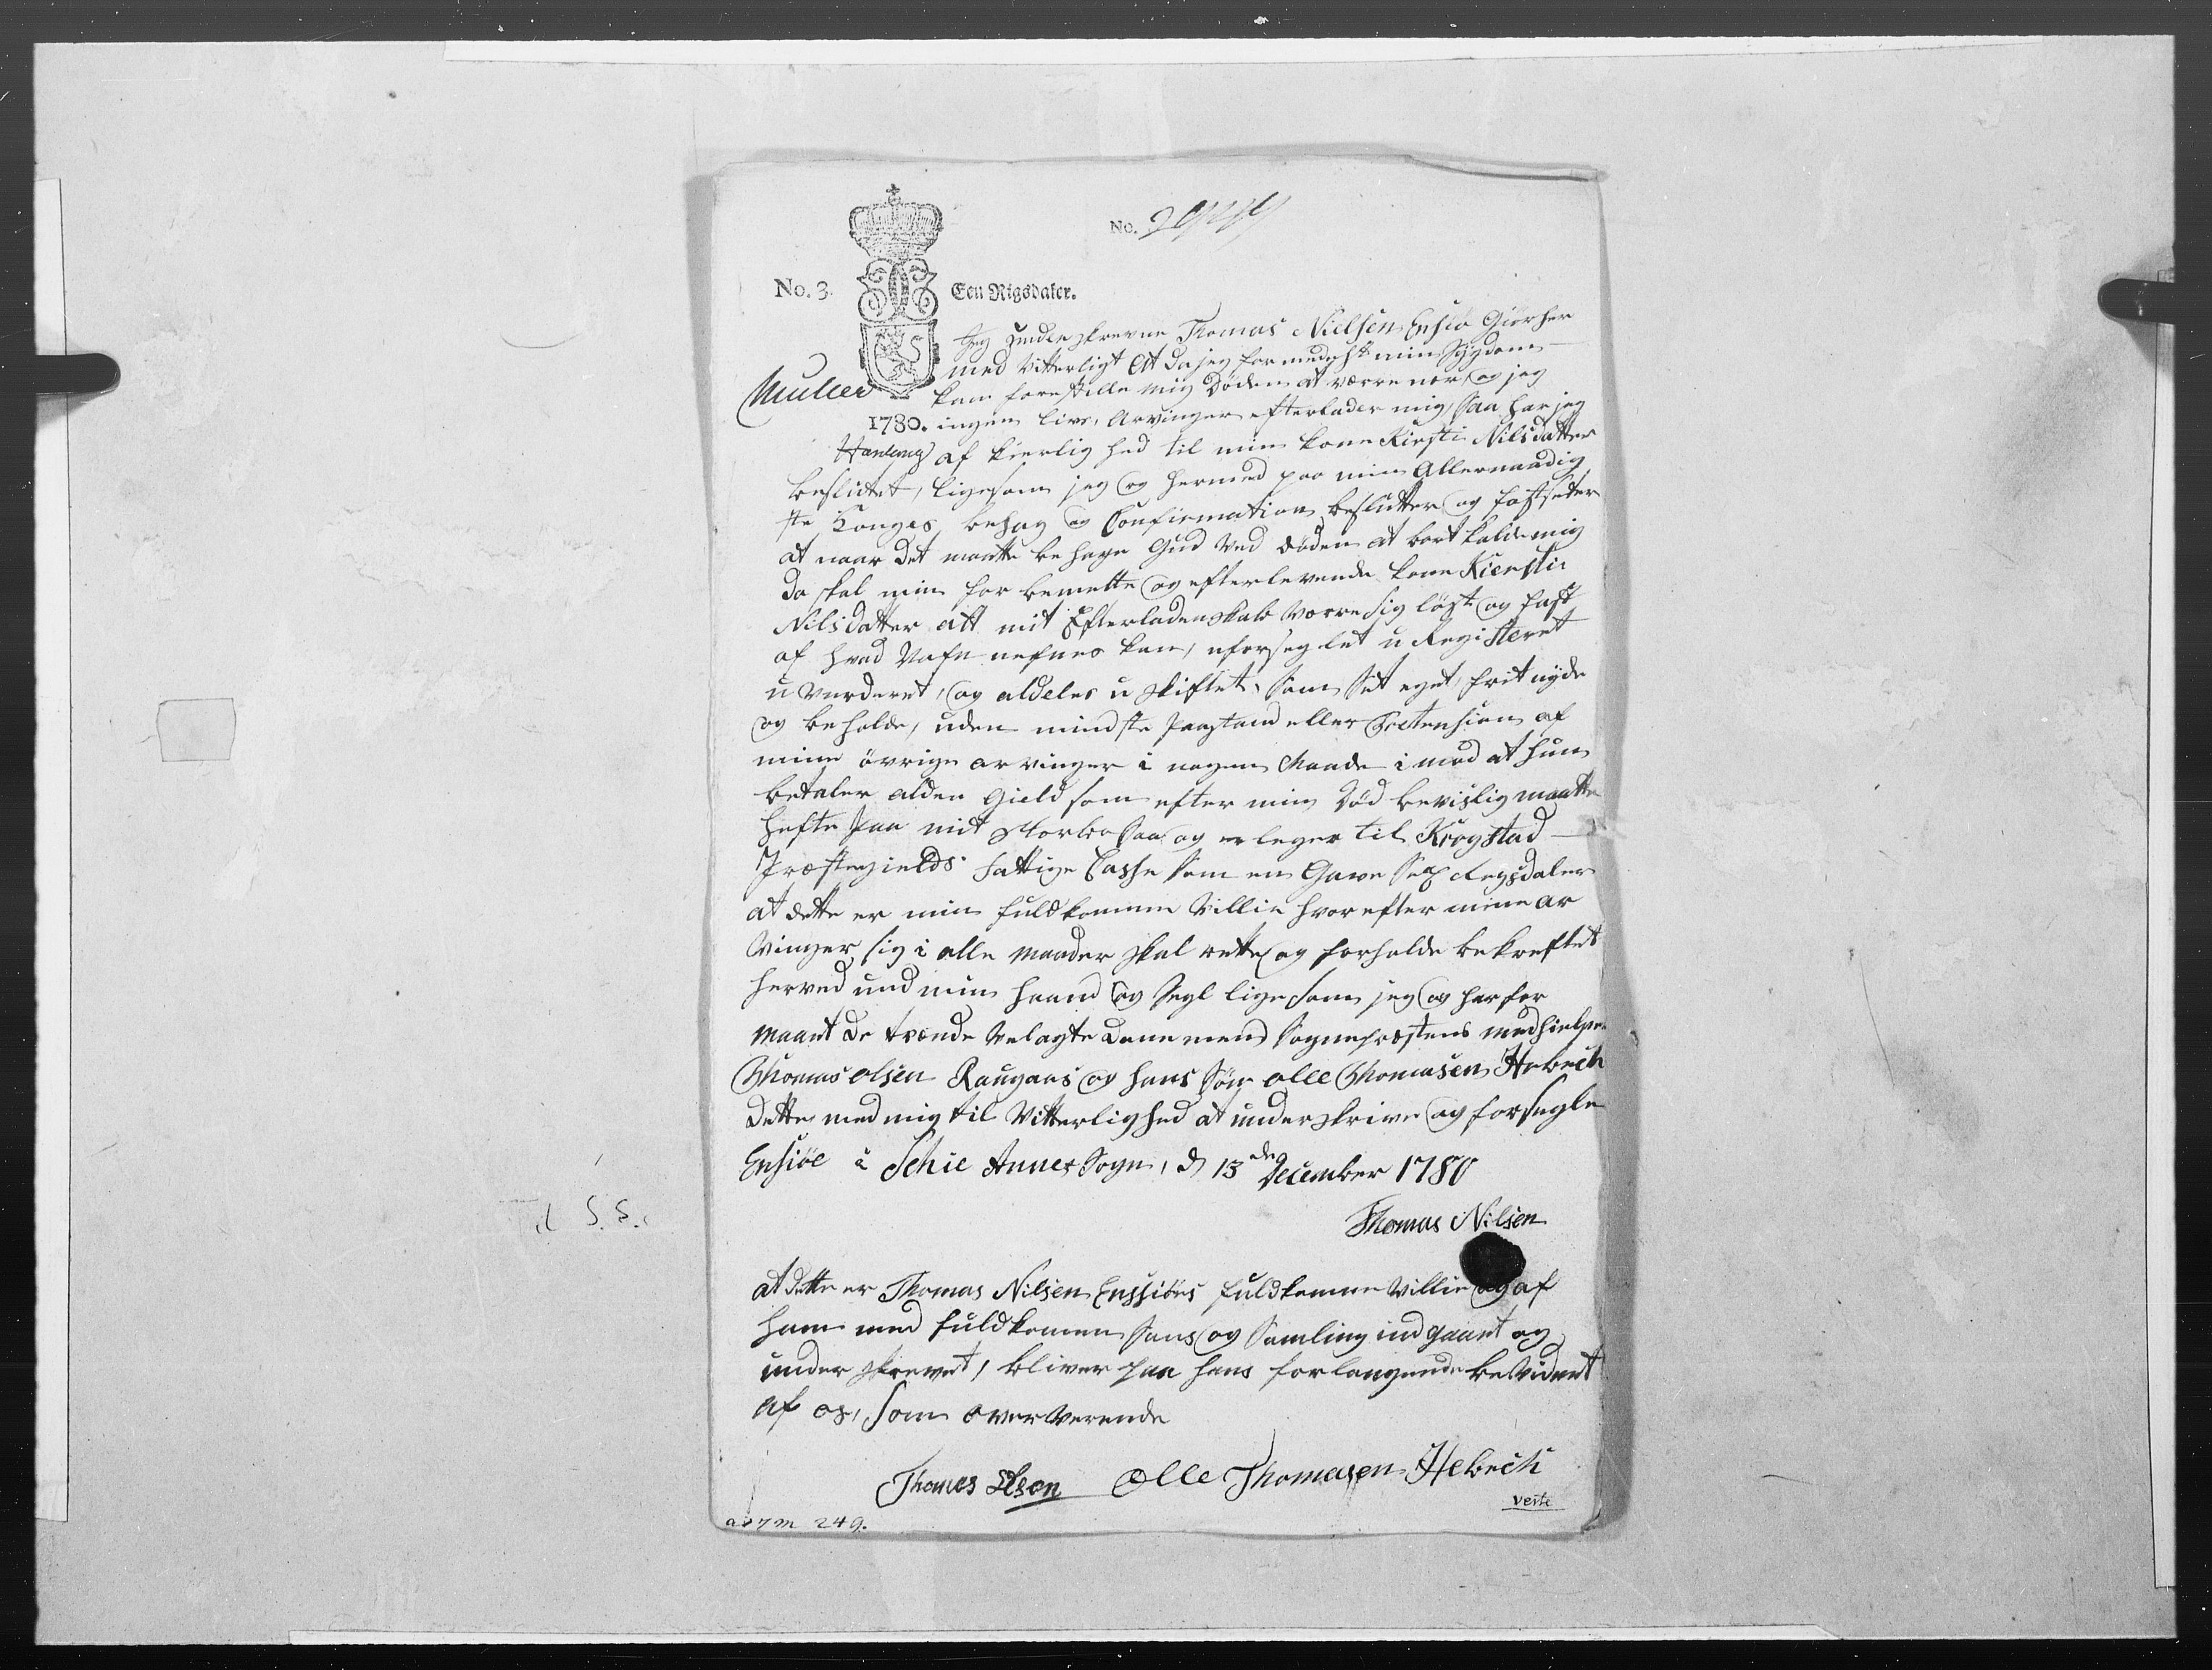 No.
No. 3.
Een Rigsdaler.
Jeg underskrevne Thomas Nielsen Ensiø Giør her
med Vitterligt at da jeg formedelst min Sygdom
Muller
kan forestille mig Døden at være nær, og jeg
1780. ingen livs Arvinger efterlader mig, saa har jeg
af kierlighed til min kone Kirsti Nilsdatter
besluttet, ligesom jeg og hermed paa min Allernaadig
ste Konges behag og Confirmation beslutter og fastsetter
at naar det maatte behage Gud ved døden at bortkalde mig
da skal min forbemelte og efterlevende kone Kiersti
Nilsdatter alt mit Efterladenskab være sig løst og fast
af hvad Nafn nefnes kan, uforseglet u Registeret
u vurderet, og aldeles u skiftet, som sit eget, frit nyde
og beholde, uden mindste Paastand eller Prætension af
mine øvrige arvinger i nogen Maade imod at hun
betaler alden Gield som efter min Død bevislig maatte
hefte paa mit Sterboe saa og erleger til Krogstad
Præstegields fattige Casse som en Gave Sex Rigsdaler
at dette er min fuldkomne Villie hvorefter mine Ar
vinger sig i alle maader skal rette og forholde bekreftes
herved med min haand og Segl ligesom jeg og har for
maaet de tvende Velagte Dannemend Sognepræstens medhielper
Thomas Olsen Raugaas og hans Søn Olle Thomasen Hebech
dette med mig til Vitterlighed at underskrive og forsegle
Ensiøe i Schie Annex Sogn, d 13de December 1780
Thomas Nilsen
at dette er Thomas Nilsen Enssiøes fuldkomne Villie og af
ham med fuldkommen Sans og Samling indgaaet og
underskrevet, bliver paa hans forlangende bevidnet
af os, som overværende
Thomes Olsen Olle Thomasen Hebech
verte
249.
S. S.